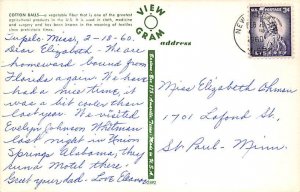 COTTON BALLS—a vegetable fiber that is one of the greatest
agricultural products in the U.S. It is used in cloth, medicine
and surgery and has been known in the weaving of textiles
since prehistoric times.
VIEW
GRAM
address
Tupelo, Miss, 2-18-60.
Dear Elizabeth, We are
homeward bound from
Florida again. We have
had a nice time, it
was a bit cooler than
last year. We visited
Evelyn Johnson Whitman
last night in Union
Springs Alabama, they
Motel there.
Greet your dad. Love
3¢
NEW
Miss Elizabeth
1701 Lafond St.
St. Paul- Minn.